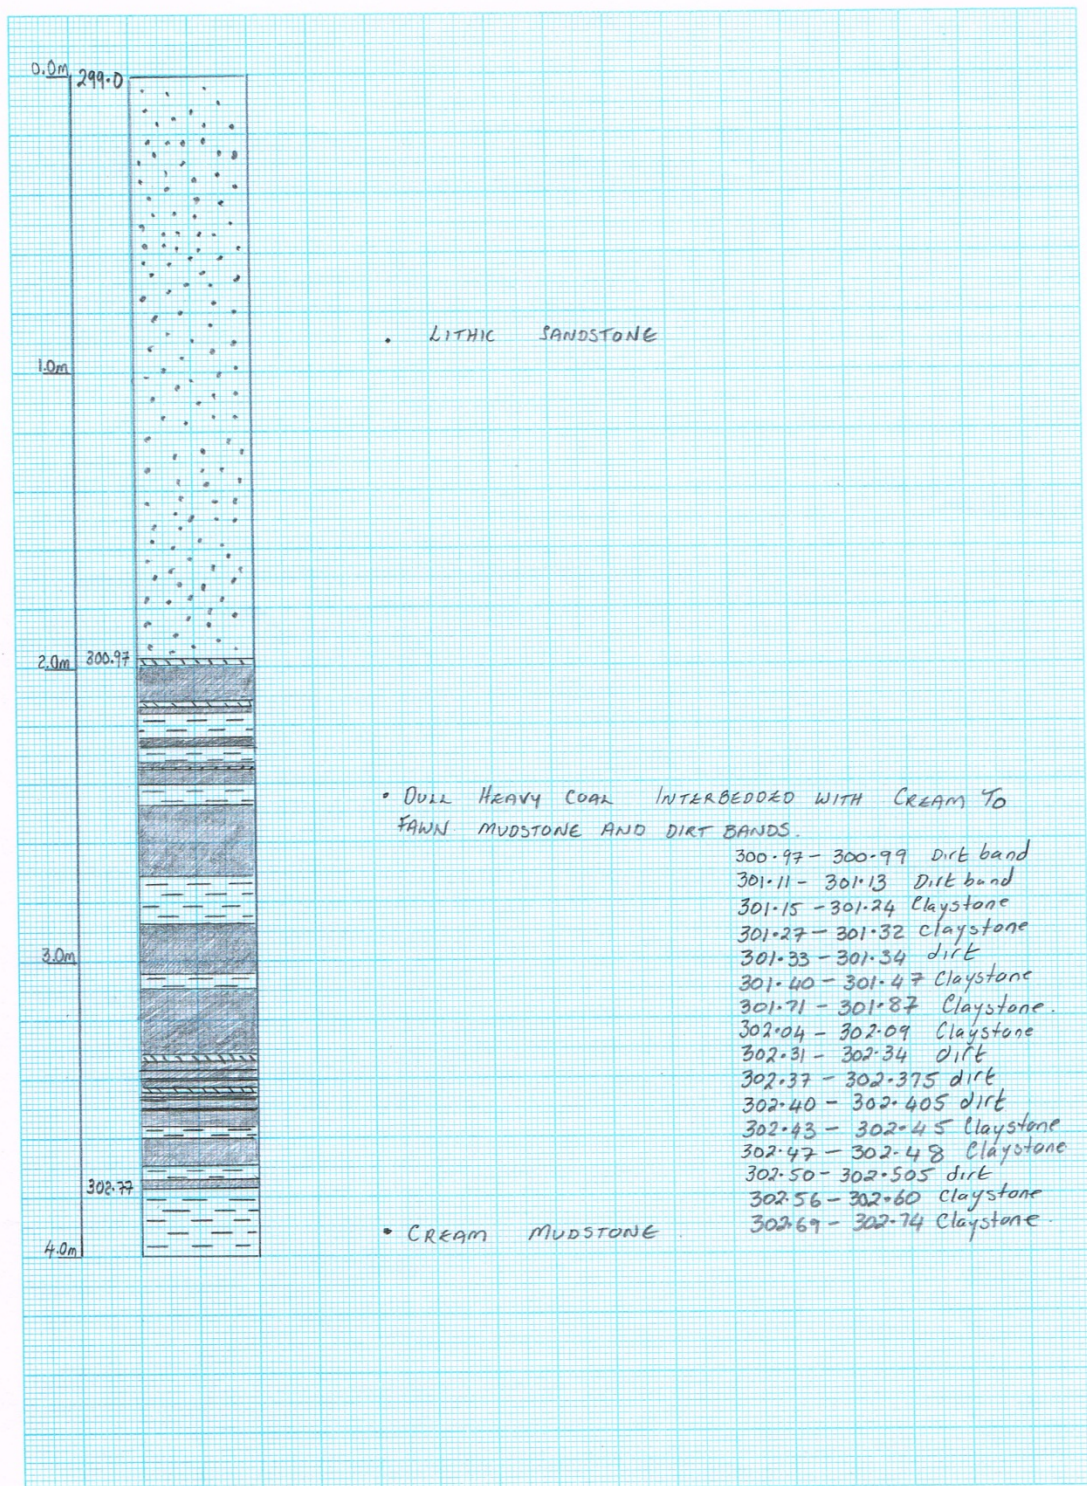 0.0m
299.0
• LITHIC SANDSTONE
1.0m
2.0m
300.97
• DULL HEAVY COAL INTERBEDDED WITH CREAM TO
FAWN MUDSTONE AND DIRT BANDS.
300.97 - 300.99 Dirt band
301.11 - 301.13 Dirt band
301.15 - 301.24 Claystone
301.27 - 301.32 Claystone
301.33 - 301.34 dirt
301.40 - 301.47 Claystone
301.71 - 301.87 Claystone.
302.04 - 302.09 Claystone
302.31 - 302.34 dirt
302.37 - 302.375 dirt
302.40 - 302.405 dirt
302.43 - 302.45 Claystone
302.47 - 302.48 Claystone
302.50 - 302.505 dirt
302.56 - 302.60 Claystone
302.69 - 302.74 Claystone.
3.0m
302.77
• CREAM MUDSTONE
4.0m